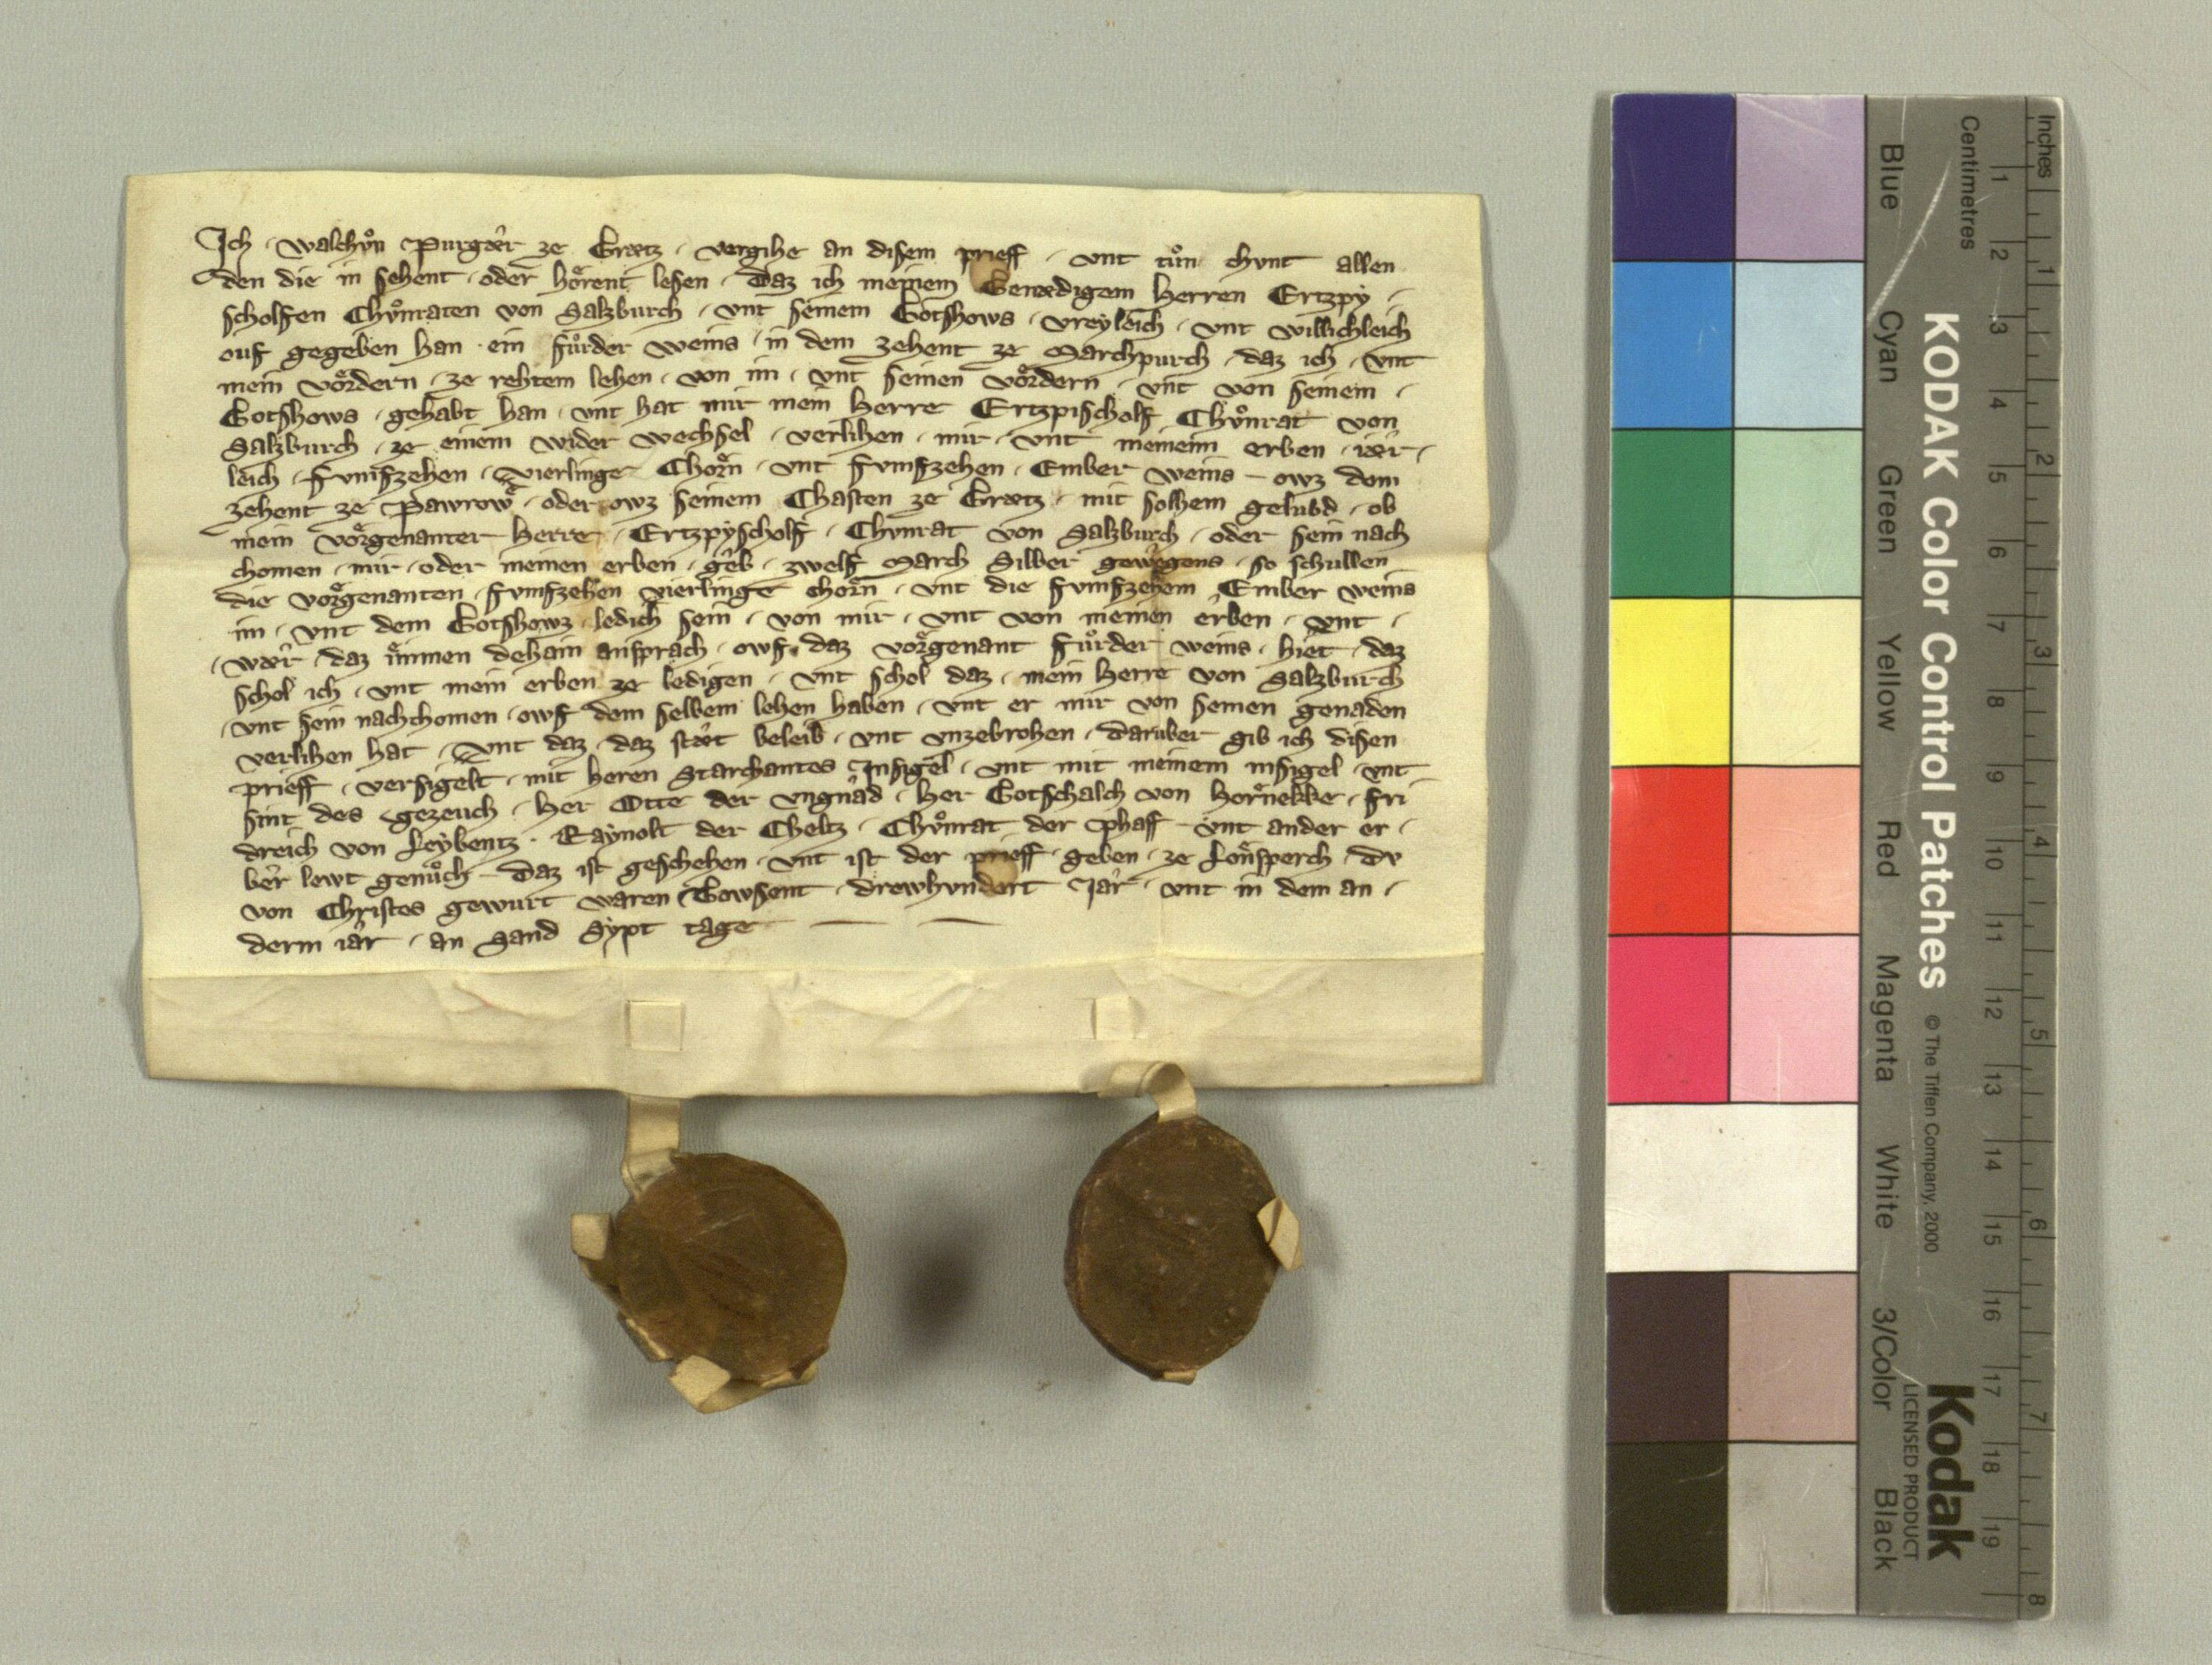 Ich · walchvͦn Purgær ze Grætz · vergihe an disem prieff · vnt tuͦn chvnt allen
den die in sehent · oder hoͤrent lesen · Daz ich meinem Genædigem Herren Ertzpy ·
scholfen Chvͦnraten von Salzburch · vnt seinem Gotshows · vreyleich · vnt willichleich
ouf gegeben han · ein fuͦrder weins · in dem zehent ze Marchpurch · daz ich · vnt
mein voͤrdern · ze rehtem lehen · von im · vnt seinen voͤrdern · vnt von seinem ·
Gotshows · gehabt han · vnt hat mir mein Herre Ertzpischolf Chvͦnrat von
Salzburch · ze einem wider wechsel · verlihen · mir · vnt meinem erben · iær ·
leich · fvmfzehen · vierlinge Chorn · vnt fvmfzehen · Ember weins – owz dem
zehent ze Pawrow · oder owz seinem Chasten ze Grætz · mit solhem gelubd · ob
mein vorgenanter Herre · Ertzpyscholf · Chvnrat von Salzburch · oder sein nach
chomen · mir · oder meinen erben · geb · zwelf March Silber gewegens · so schullen
die vorgenanten · fvmfzehen vierlinge chorn · vnt die fvmfzehem Ember weins
im · vnt dem Gotshowz · ledich sein · von mir · vnt von meinen erben · vnt ·
· wær · daz immen dehain ansprach · owf · daz vorgenant fuͦrder weins · hiet · daz
schol ich · vnt mein erben ze ledigen · vnt schol daz · mein Herre von Salzburch
· vnt sein nachchomen · owf dem selbem lehen haben · vnt er mir von seinen genaden
verlihen hat · vnt daz · daz stæt beleib · vnt vnzebrohen · darvber gib ich disen
prieff · versigelt · mit heren Starchantes Insigel · vnt mit meinem insigel · vnt
sint des gezeuch · Her Otte der vngnad · Her Gotschalch von Hornekke · fri
dreich von Leybentz · Raynolt der Cheltz · Chvͦnrat der Phaff – vnt ander er ·
ber lewt genuͦch – Daz ist geschehen · vnt ist der prieff · geben · ze Lonsperch · dv
von Christes gewurt waren Towsent · drewhvndert Jar · vnt in dem an ·
derm iar · an sand Sypt tage
KODAK Color Control Patches
© The Tiffen Company, 2000
Kodak
LICENSED PRODUCT
Blue Cyan Green Yellow Red Magenta White 3/Color Black
Inches 1 2 3 4 5 6 7 8
Centimetres 1 2 3 4 5 6 7 8 9 10 11 12 13 14 15 16 17 18 19